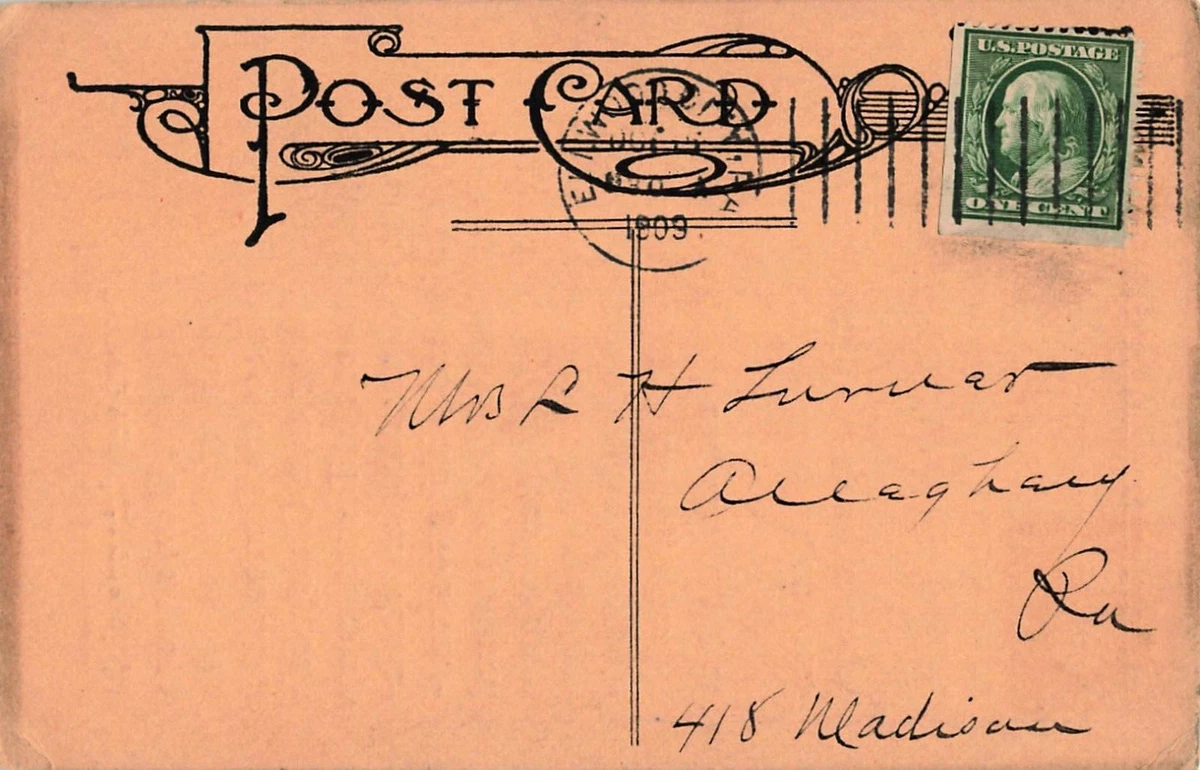 POST CARD
U.S. POSTAGE
ONE CENT
1909
Mrs R H
Allaghany
Pa
418 Madison